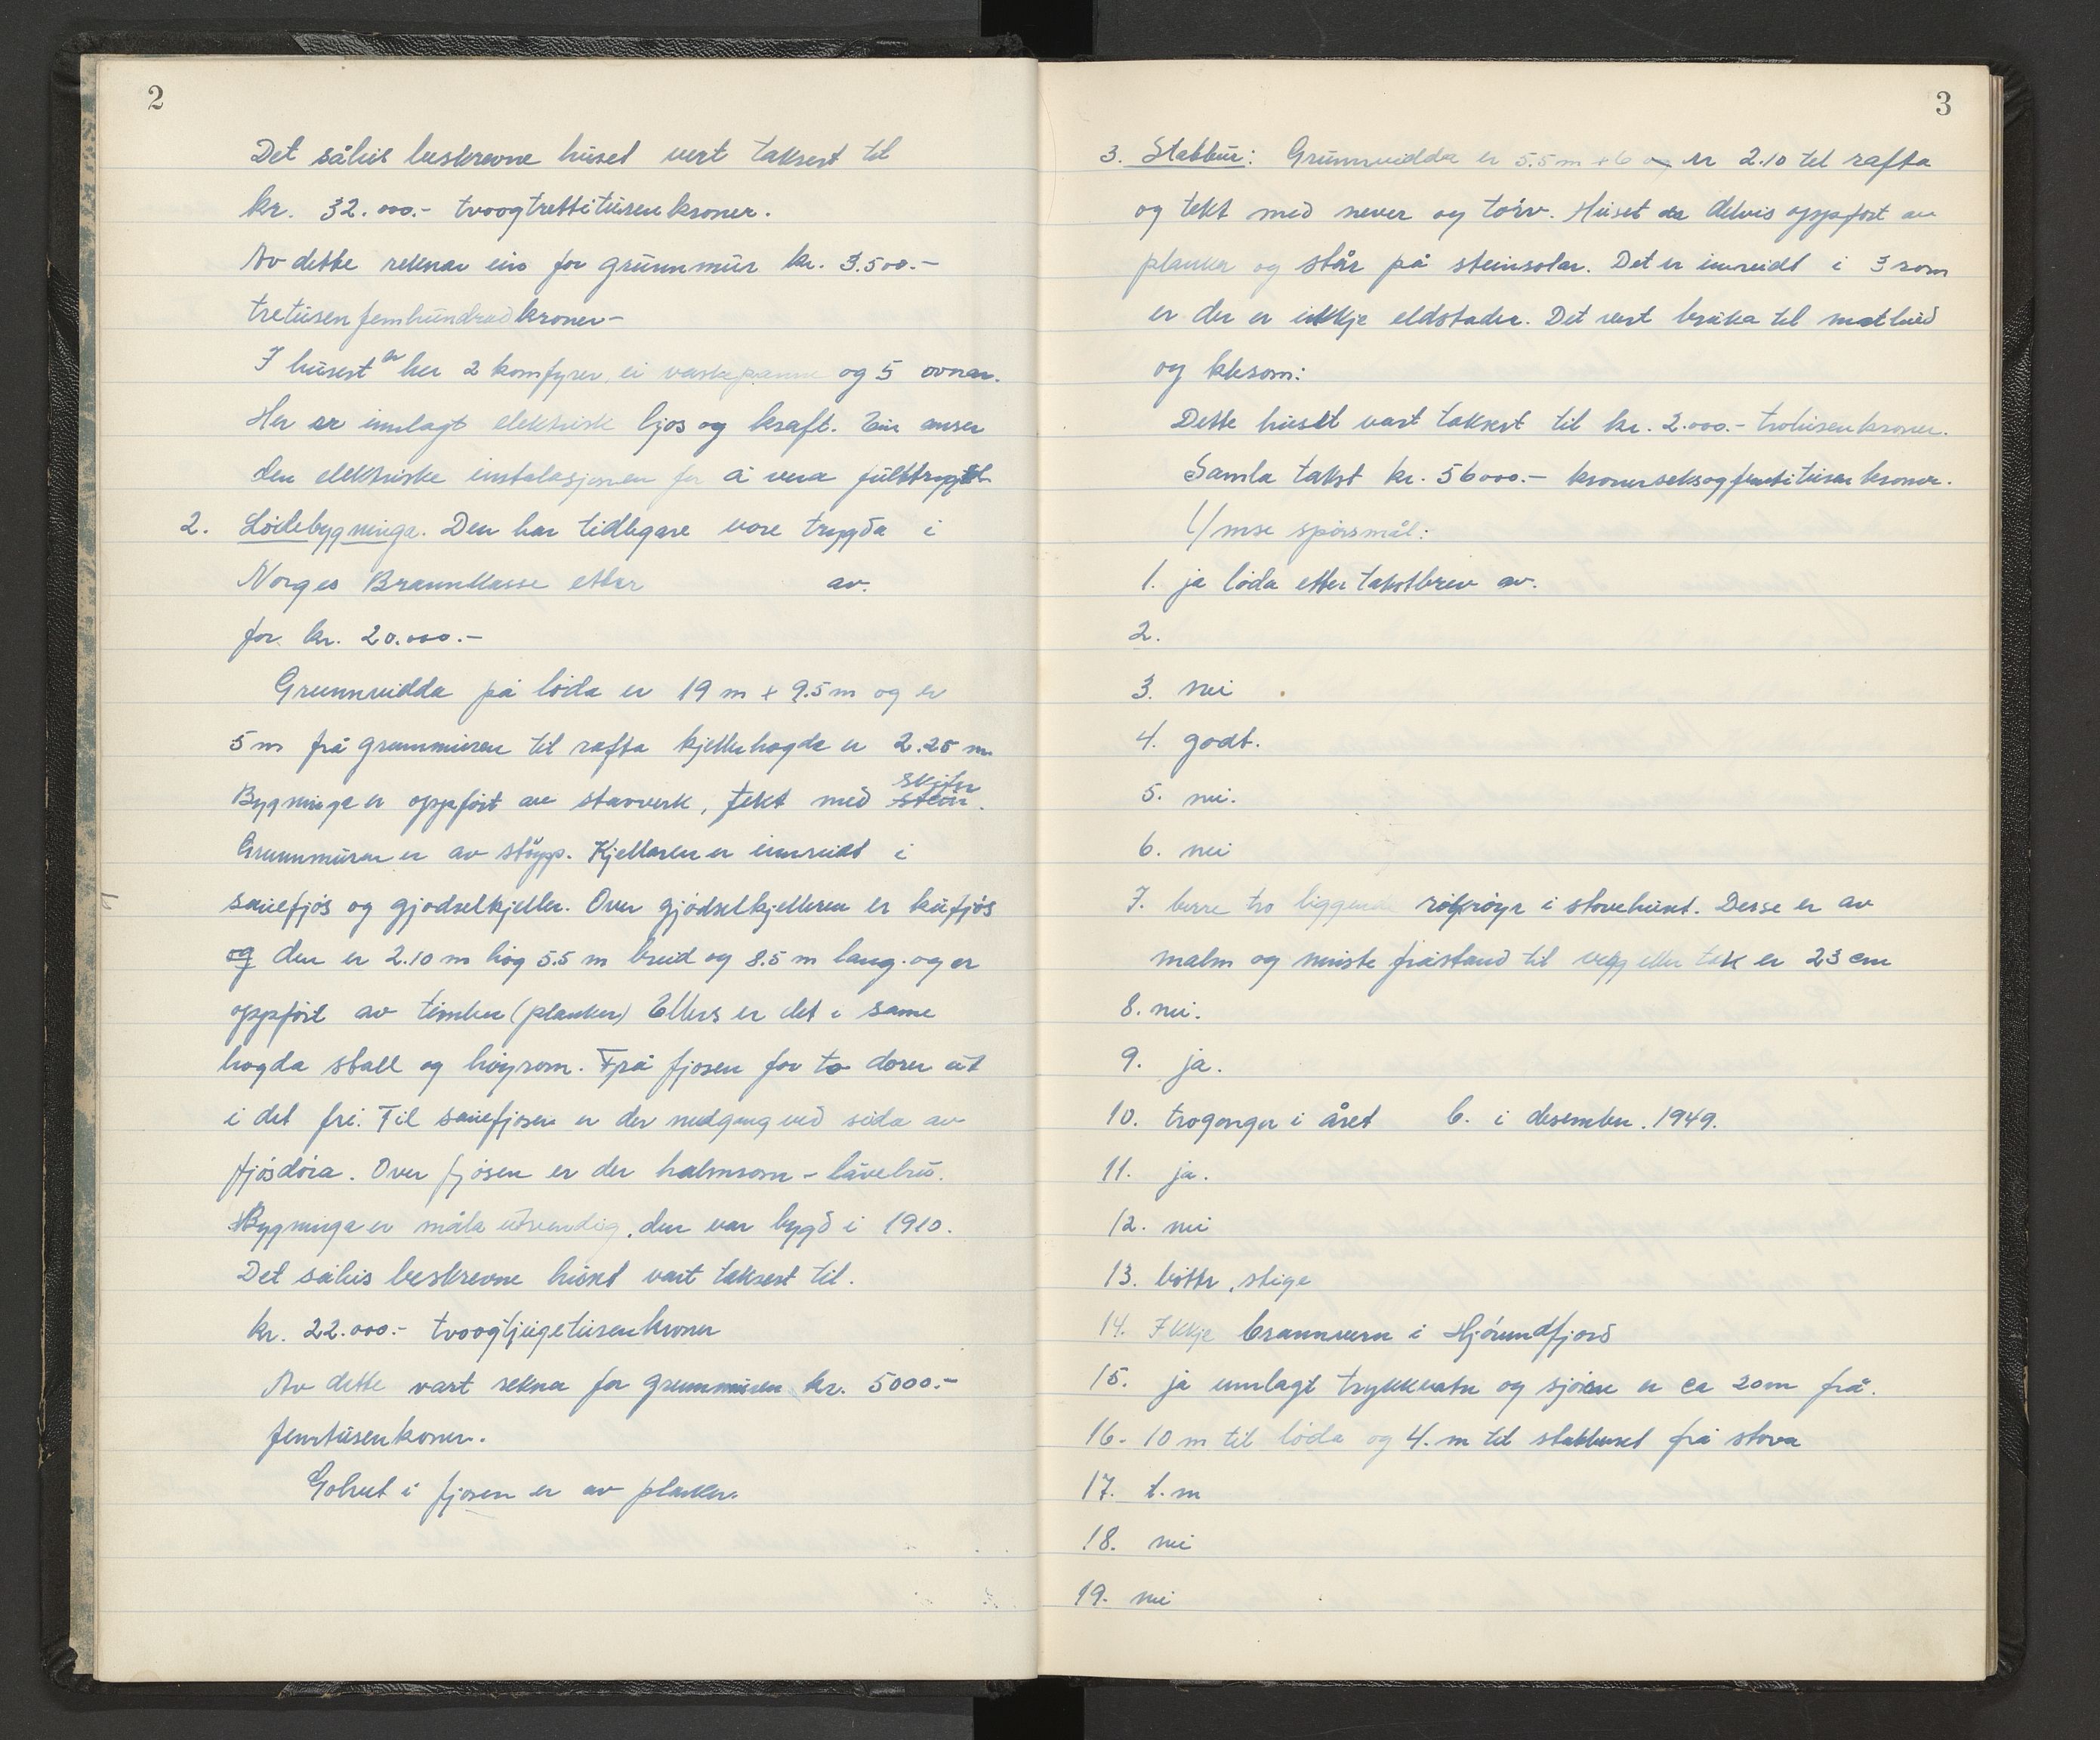 2
Det såleis beskrevne huset vert taksert til
kr. 32.000.- tvoogtrettitusenkroner.
Av dette reknar ein for grunnmur kr. 3.500.-
tretusenfemhundradkroner-
I huset er her 2 komfyrer, ei vaskepanne og 5 ovnar.
Her er innlagt elektrisk ljos og kraft. Ein anser
den elektriske instalasjonen for å vera fullt
2. Lødebygninga. Den har tidlegare vore trygda i
Norges Brannkasse etter av.
for kr. 20.000.-
Grunnvidda på løda er 19 m x 9.5 m og er
5 m frå grunnmuren til rafta kjellerhøgda er 2.25 m
Bygninga er oppført av stavverk, tekt med skifer stein.
Grunnmuren er av støyp. Kjellaren er innreidt i
sauefjøs og gjødselkjeller. Over gjødselkjelleren er kufjøs
og den er 2.10 m høg 5.5 m breid og 8.5 m lang. og er
oppført av timber (planker) Ellers er det i same
høgda stall og høyrom. Frå fjøsen før to dører ut
i det fri. Til sauefjøsen er der nedgang ved sida av
fjøsdøra. Over fjøsen er der halmrom - låvebru.
Bygninga er måla utvendig, den var bygd i 1910.
Det såleis beskrevne huset vart taksert til.
kr. 22.000.- tvoogtjugetusenkroner
Av dette vart rekna for grunnmuren kr. 5000.-
femtusenkoner.
Golvet i fjøsen er av planker.
3
3. Stabbur: Grunnvidda er 5.5 m x 6 og er 2.10 til rafta
og tekt med never og torv. Huset er delvis oppført av
planker og står på steinsolar. Det er innreidt i 3 rom
er der er ikkje eldstader. Det vert bruka til matbud
og
Dette huset vart taksert til kr. 2.000.- totusenkroner.
Samla takst kr. 56000.- kronerseksogfemtitusen kroner.
Ymse spørsmål:
1. ja løda etter takstbrev av.
2.
3. nei
4. godt.
5. nei.
6. nei
7. berre to liggende røykrøyr i stovehuset. Desse er av
malm og minste fråstand til vegg eller tak er 23 cm
8. nei.
9. ja.
10. togonger i året 6. i desember. 1949.
11. ja.
12. nei
13. bøtter, stige
14. Ikkje brannvern i Hjørundfjord
15. ja innlagt trykkvatn og sjøen er ca 20m frå.
16. 10 m til løda og 4. m til stabburet frå stova
17. t. m
18. nei
19. nei